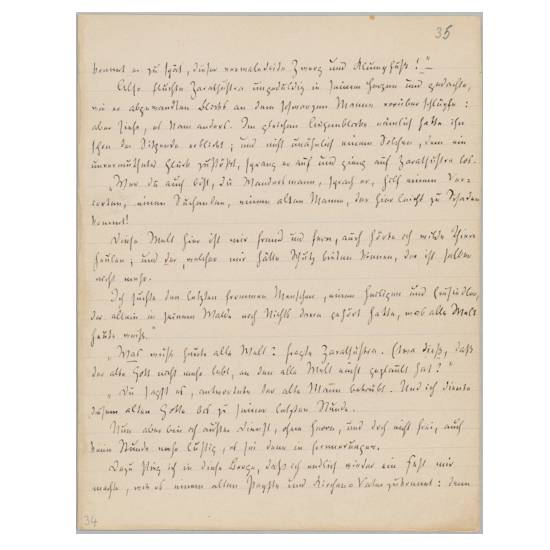 35
kommt er zu spät, dieser vermaledeite Zwerg und Klumpfuß!"—
Also fluchte Zarathustra ungeduldig in seinem Herzen und gedachte,
wie er abgewandten Blicks an dem schwarzen Manne vorüberschlüpfe:
aber siehe, es kam anders. Im gleichen Augenblicke nämlich hatte ihn
schon der Sitzende erblickt; und nicht unähnlich einem Solchen, dem ein
unvermuthetes Glück zustößt, sprang er auf und gieng auf Zarathustra los.
„Wer du auch bist, du Wandersmann, sprach er, hilf einem Ver-
irrten, einem Suchenden, einem alten Manne, der hier leicht zu Schaden
kommt!
Diese Welt hier ist mir fremd und fern, auch hörte ich wilde Thiere
heulen; und der, welcher mir hätte Schutz bieten können, der ist selber
nicht mehr.
Ich suchte den letzten frommen Menschen, einen Heiligen und Einsiedler,
der allein in seinem Walde noch Nichts davon gehört hatte, was alle Welt
heute weiß."
„Was weiß heute alle Welt? fragte Zarathustra. Etwa dieß, daß
der alte Gott nicht mehr lebt, an den alle Welt einst geglaubt hat?"
„Du sagst es, antwortete der alte Mann betrübt. Und ich diente
diesem alten Gotte bis zu seiner letzten Stunde.
Nun aber bin ich außer Dienst, ohne Herrn, und doch nicht frei, auch
keine Stunde mehr lustig, es sei denn in Erinnerungen.
Dazu stieg ich in diese Berge, daß ich endlich wieder ein Fest mir
machte, wie es einem alten Papste und Kirchen-Vater zukommt: denn
34